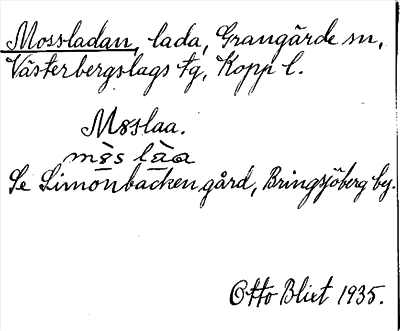 Mossladan, lada, Grangärde sn,
Västerbergslags tg, Kopp l.
M8slaa.
mò̱s là̱a
Se Simonbacken gård, Bringsjöberg by.
Otto Blixt 1935.